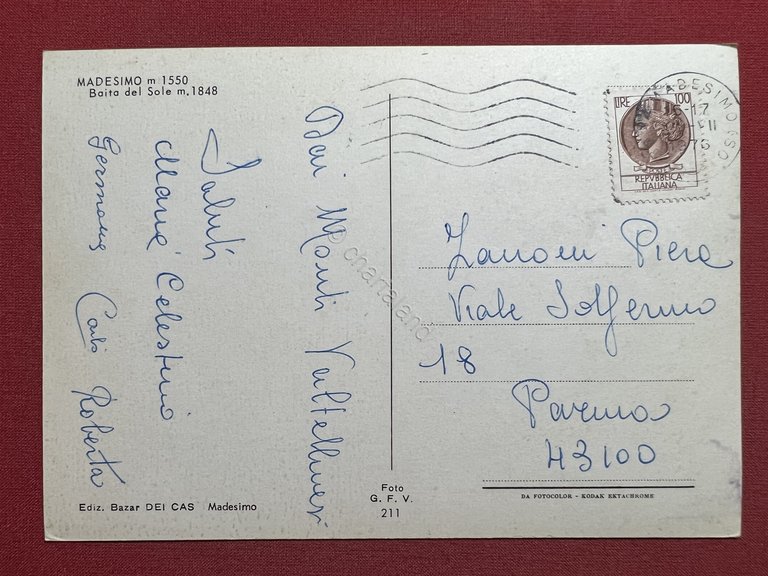 MADESIMO m 1550
Baita del Sole m. 1848
Dai Monti Valtellinesi
Saluti
Maria Celestino
Germana Carlo Roberta
Ediz. Bazar DEI CAS Madesimo
Foto
G. F. V.
211
MADESIMO (SO)
16-17
VII
76
LIRE 100
REPVBBLICA
ITALIANA
Zanoni Piera
Viale Solferino
18
Parma
43100
DA FOTOCOLOR - KODAK EKTACHROME
© charraland